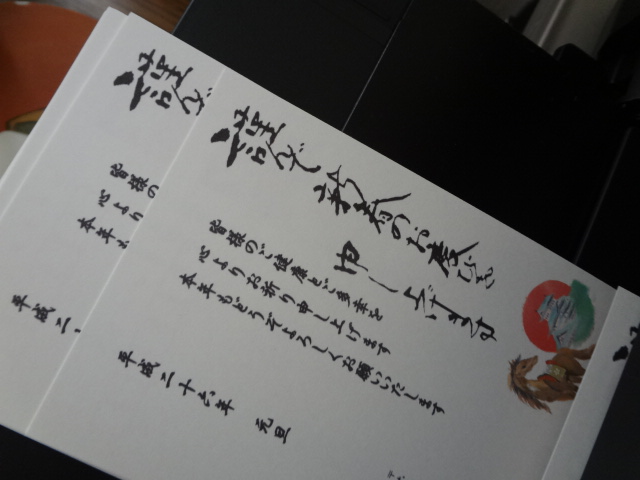 謹んで新春のお慶びを
申し上げます
皆様のご健康とご多幸を
心よりお祈り申し上げます
本年もどうぞよろしくお願いいたします
平成二十六年 元旦
謹んで
皆様の
心より
本年も
平成二